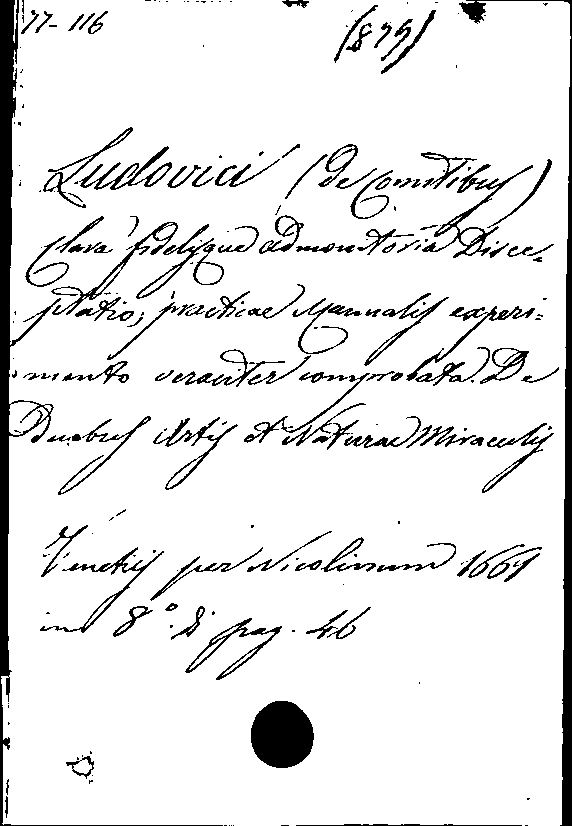 77-116
(899)
Ludovici (de Comitibus)
Clara fidelisque admonitoria Disce-
ptatio; practicae Manualis experi-
mento veraciter comprobata. De
Duobus Artis et Naturae Miraculis
Venetiis per Nicolinum 1669
in 8.º di pag. 46